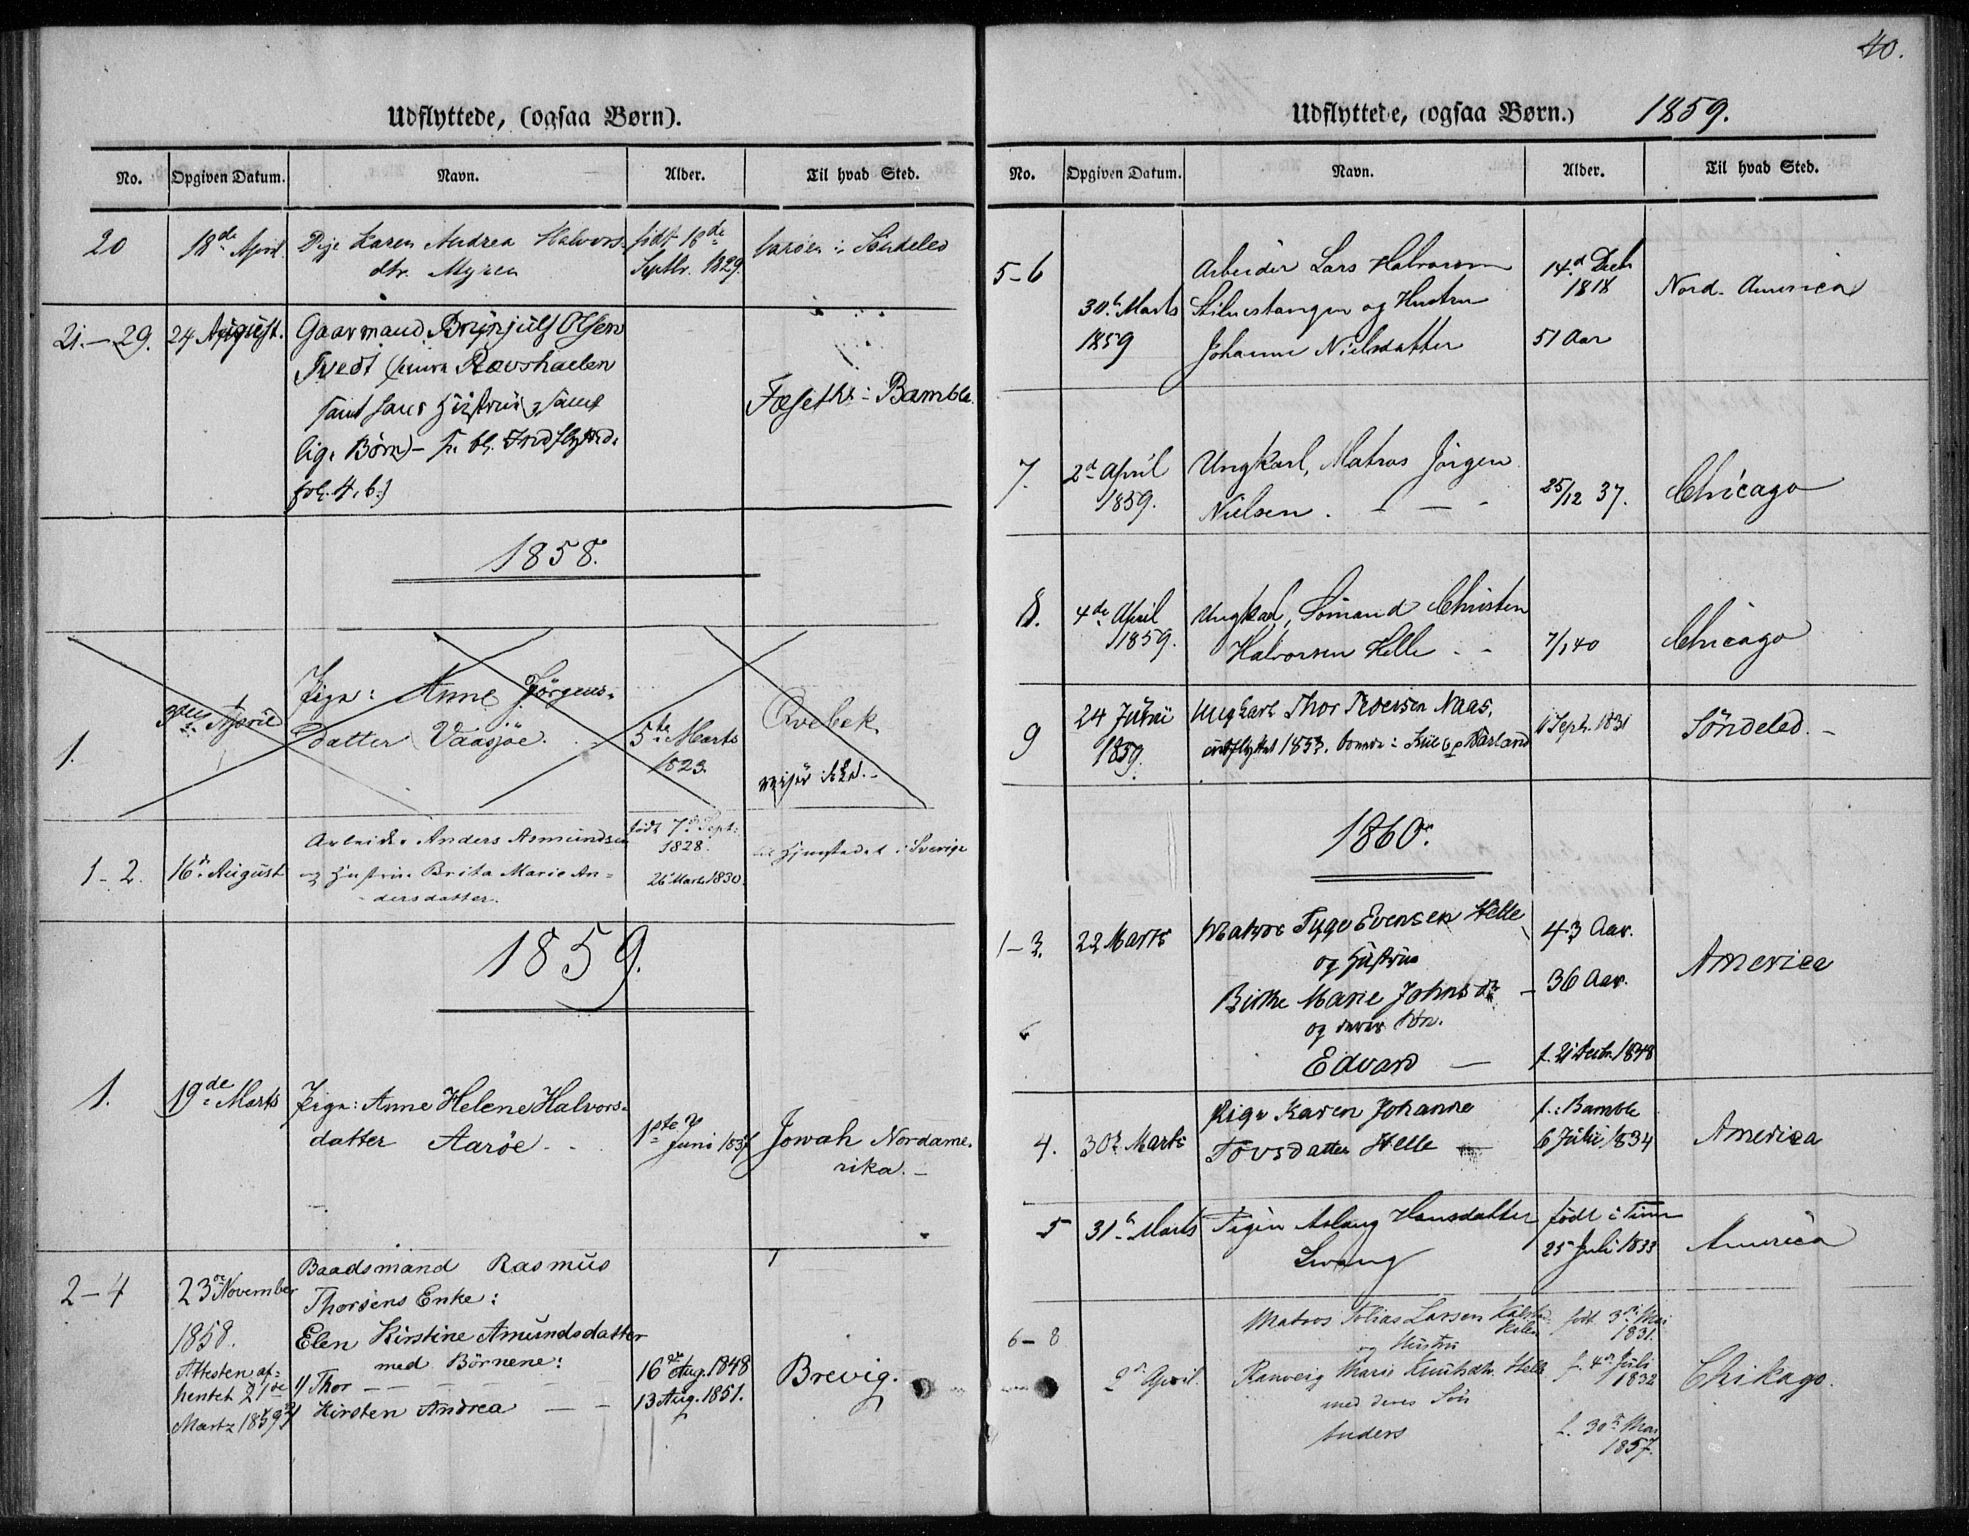 40.
Udflyttede, (ogsaa Børn).
No. Opgiven Datum. Navn. Alder. Til hvad Sted.
20 18de April Pige Karen Andrea Halvors- født 16de Barøen i Søndeled
dtr. Myren Septbr. 1829.
21.-29. 24 August. Gaarmand Brynjulf Olsen
Tvedt
samt hans Hustrue, samt- Foseth i Bamble.
lige Børn
fol. 4, b.)
1858.
1. April Pige: Anne Jørgens- 5te Marts Qvebek
datter Vaasjøe. 1823. reiser ikke.-
1-2. 16de August Arbeider Anders Asmundsen født 7de Sept: Hjemstedet i Sverige
1828.
og Hustrue Brita Marie An- 26 Marts 1830.
dersdatter.
1859.
1. 19de Marts Pige: Anne Helene Halvors- 1ste Juni 1837 Jowah Nordame-
datter Aarøe. rika.-
2-4 23de November Baadsmand Rasmus
1858. Thorsens Enke:
Elen Kirstine Amundsdatter
Attesten af- med Børnene:
hentet 21de 1) Thor 16de Aug. 1848 Brevig.
Martz 1859 2) Kirsten Andrea 13 Aug. 1851.
Udflyttede, (ogsaa Børn.) 1859.
No. Opgiven Datum. Navn. Alder. Til hvad Sted.
5-6 Arbeider Lars Halvorsen 14d Decb Nord-America
1818
30te Marts Stilnestangen og Hustru
1859 Johanne Nielsdatter 51 Aar
7. 2d April Ungkarl, Matros Jörgen
1859. Nielsen. 25/12 37. Chicago
8. 4de April Ungkarl, Sömand Christen
1859. Halvorsen Helle 7/1 40 Chicago
9 24 Juni Ungkarl Thor Pedersen Naas, Sept. 1831 Söndeled.-
1859. udflyttet 1853.
1860.
1-3. 22 Marts Matros Tyge Evensen Helle 43 Aar. America
og Hustrue
Birthe Marie Johnsdtr 36 Aar.
og deres Sön.
Edvard f. 21 Decbr. 1848
4. 30te Marts Pige Karen Johanne f. i Bamble America
Tovsdatter Helle 6 Julii 1834
5 31te Marts Pigen Aslaug Hansdatter født i Tinn America
25 Juli 1833
6-8 Matros Tobias Larsen født 3de Mai
1831.
og Hustru
2de April. Ranveig Marie Knudsdtr. Helle f. 4de Juli Chikago.
1832
med deres Sön
Anders f. 30te Mai
1857.